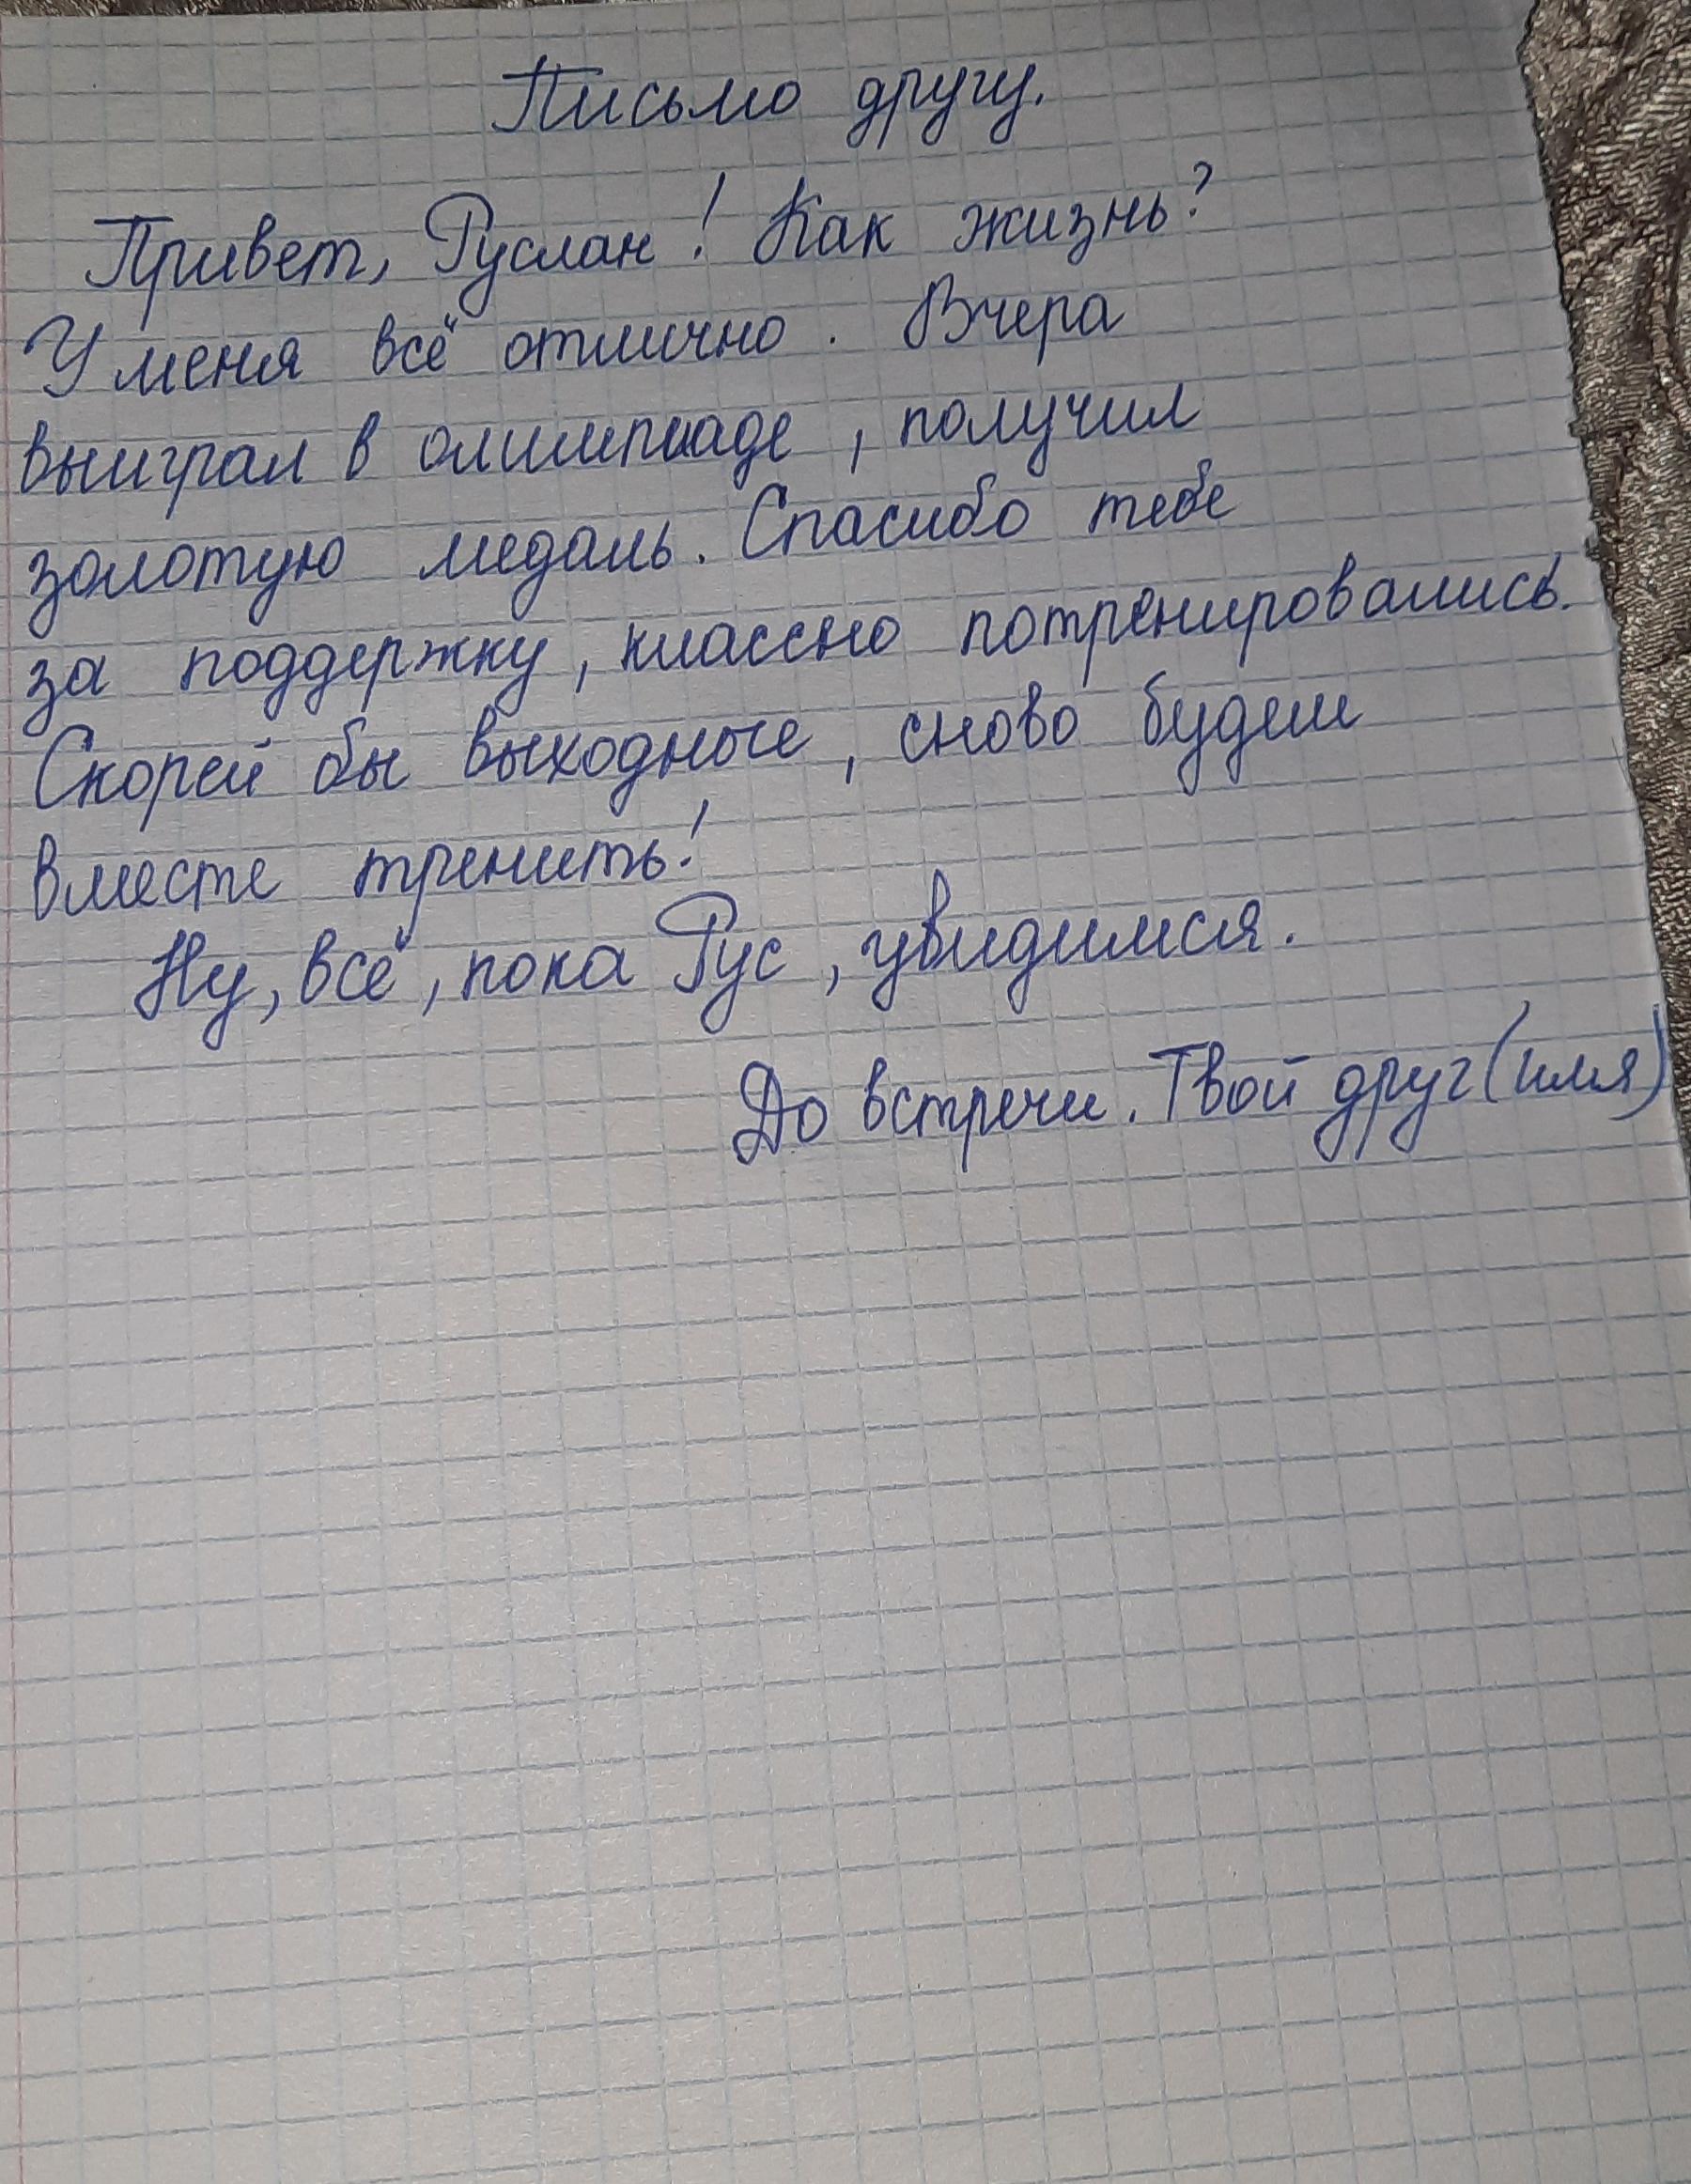 Письмо другу.
Привет, Руслан! Как жизнь?
У меня всё отлично. Вчера
выиграл в олимпиаде, получил
золотую медаль. Спасибо тебе
за поддержку, классно потренировались.
Скорей бы выходные, сново будем
вместе тренить!
Ну, всё, пока Рус, увидимся.
До встречи. Твой друг (имя)